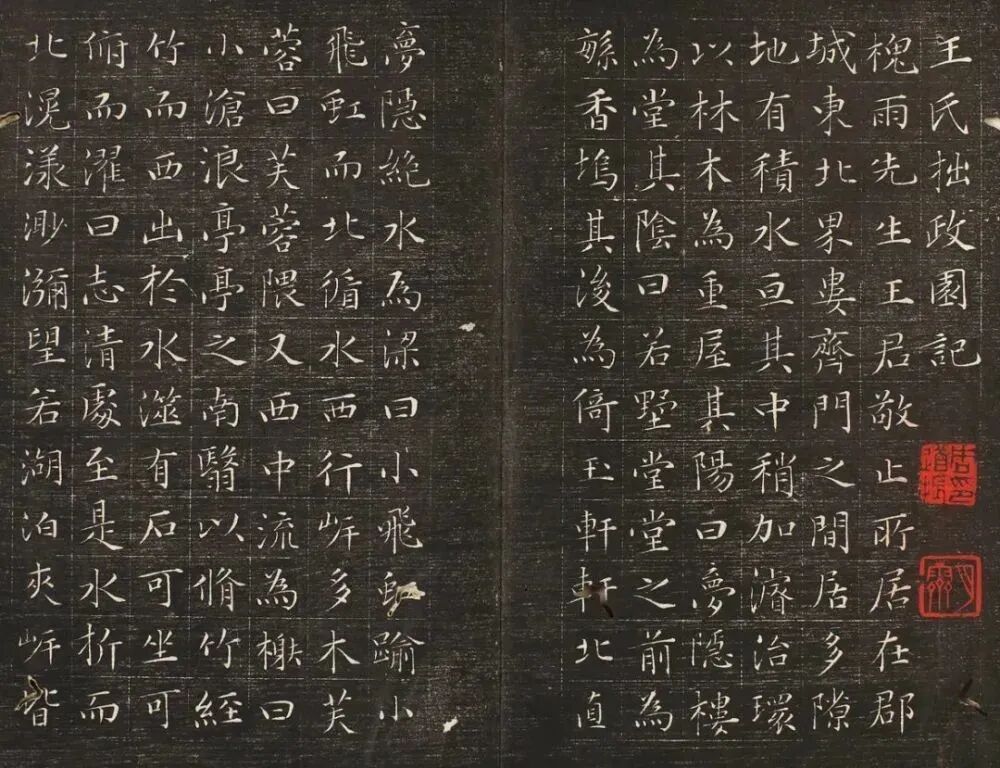 王氏拙政園記
槐雨先生王君敬止所居在郡
城東北界婁齊門之間居多隙
地有積水亘其中稍加濬治環
以林木為重屋其陽曰夢隱樓
為堂其陰曰若墅堂堂之前為
緐香塢其後為倚玉軒軒北直
夢隱絕水為梁曰小飛虹踰小
飛虹而北循水西行岸多木芙
蓉曰芙蓉隈又西中流為榭曰
小滄浪亭亭之南翳以脩竹經
竹而西出於水澨有石可坐可
俯而濯曰志清處至是水折而
北滉漾渺瀰望若湖泊夾岸皆
周印道振